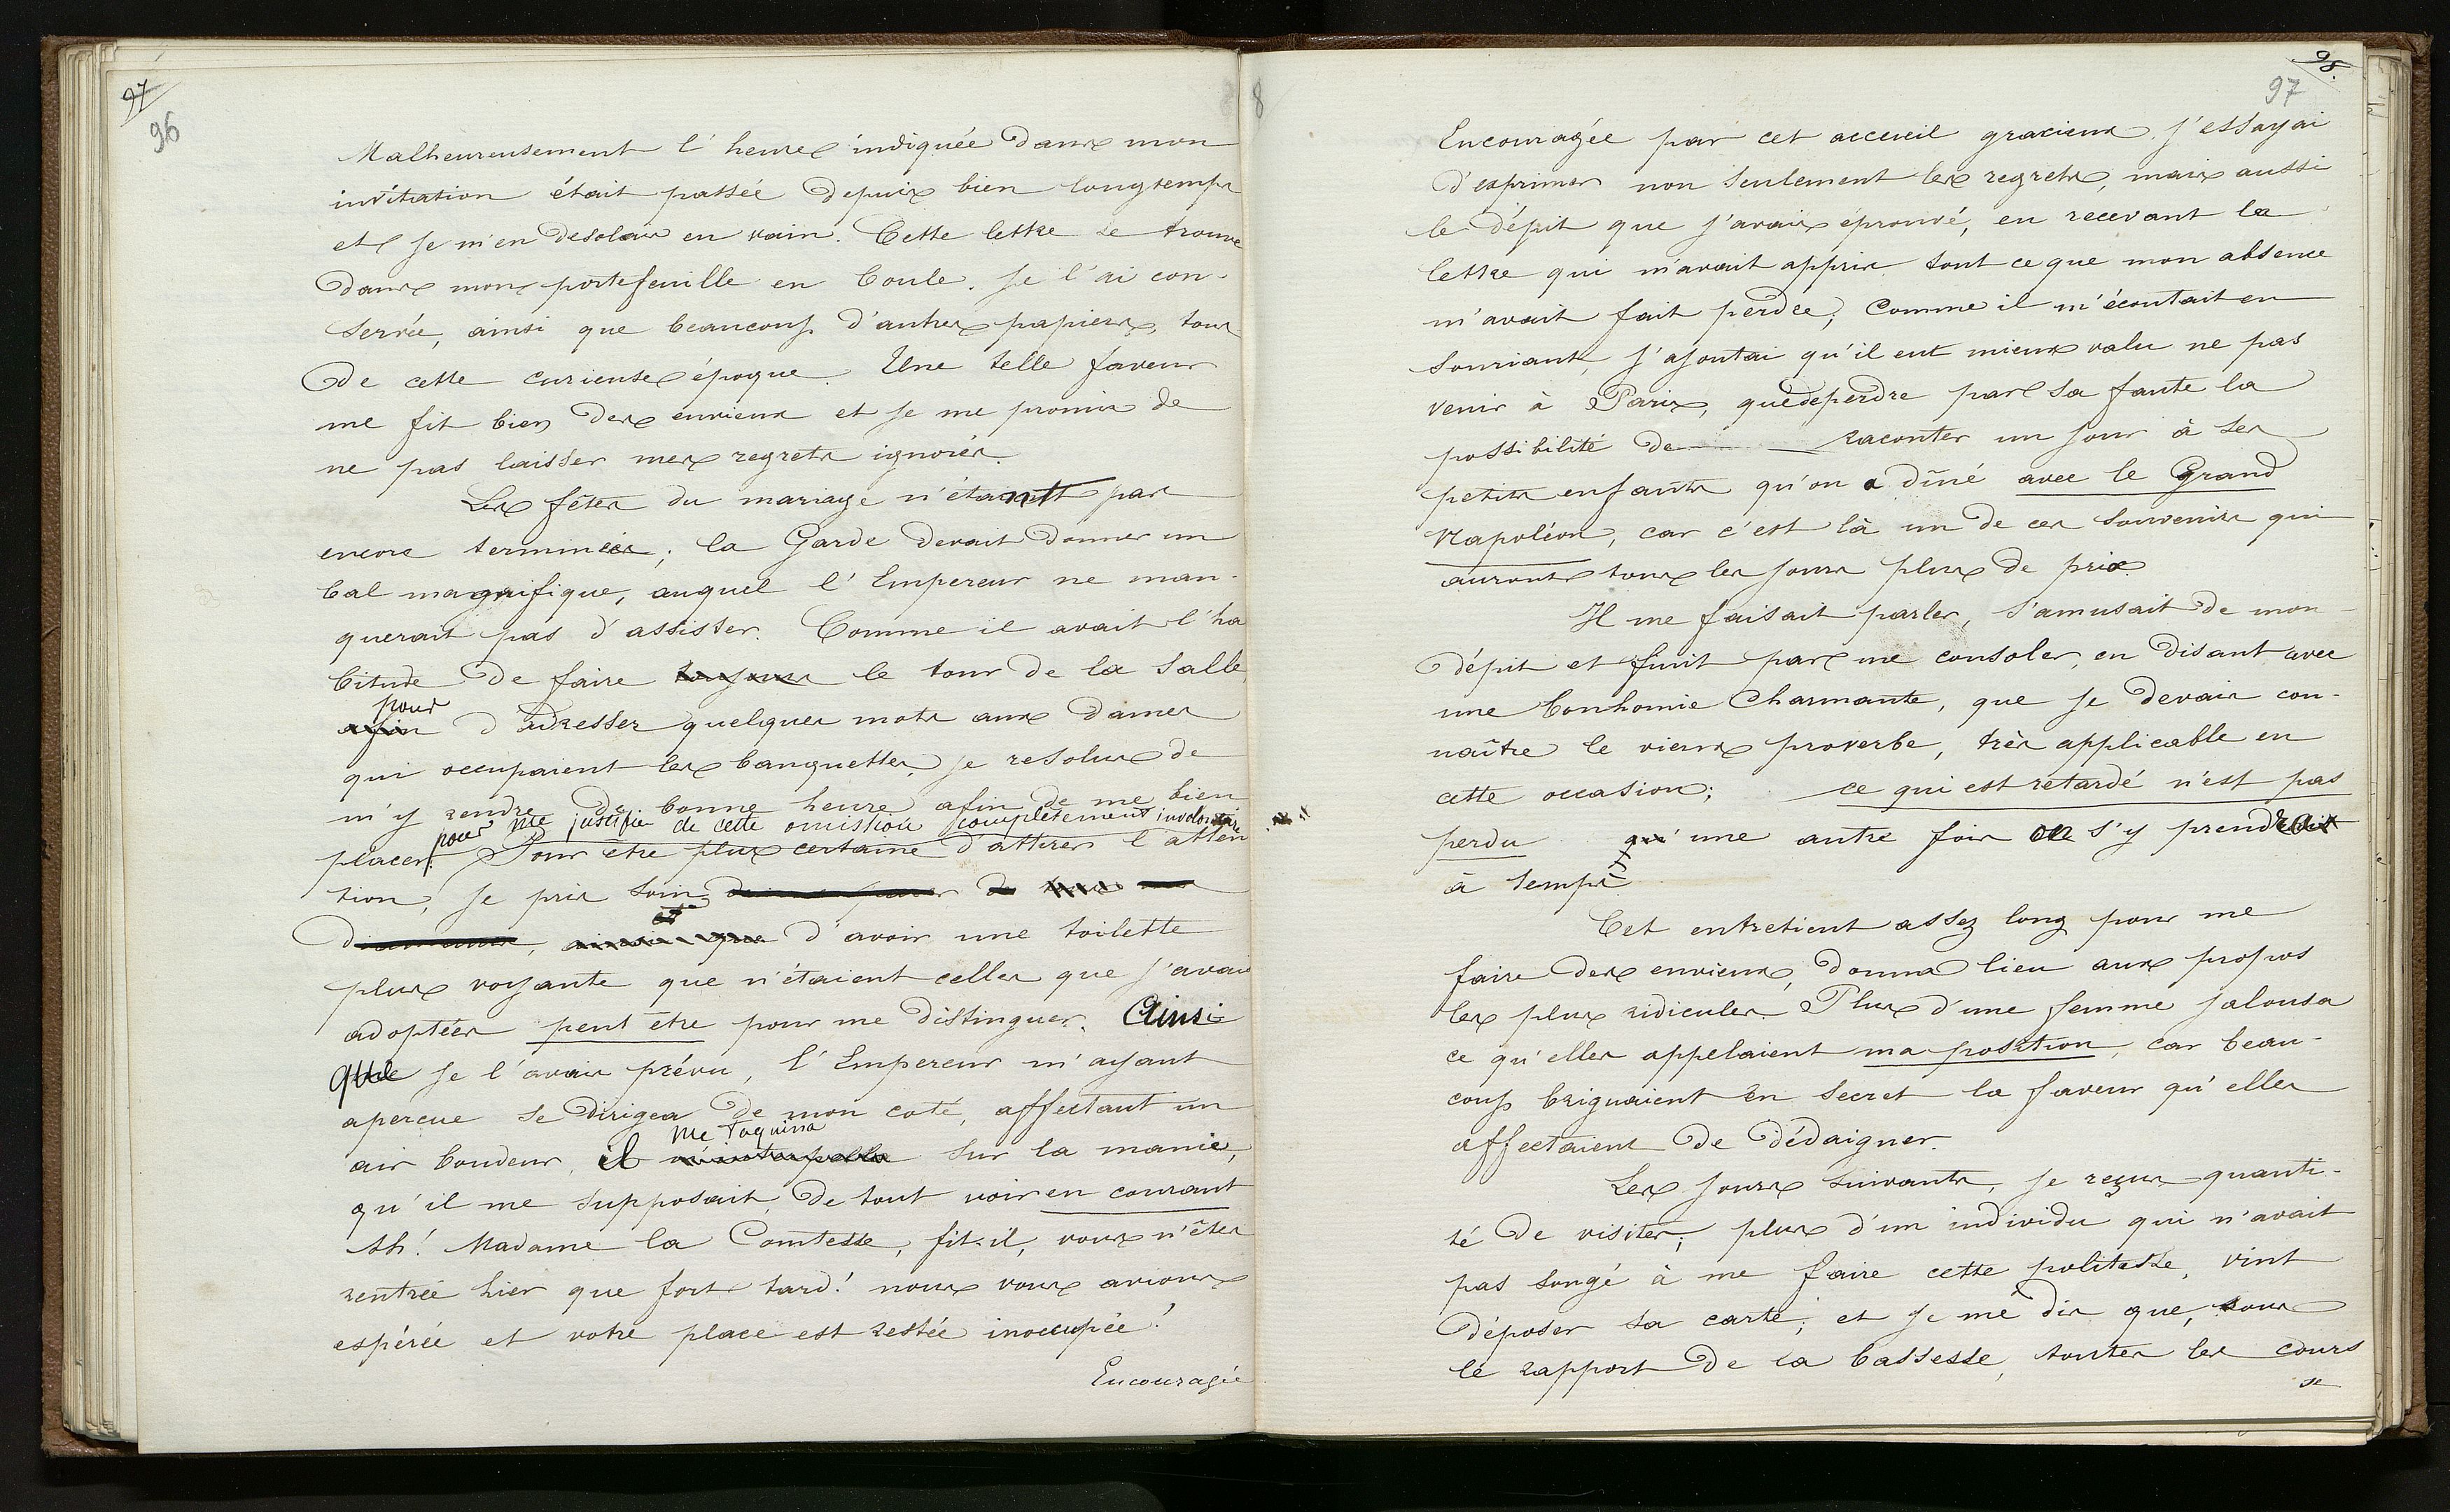 97
96
Malheureusement l'heure indiquée dans mon
invitation était passée depuis bien longtemps
et je m'en desolais en vain. Cette lettre se trouve
dans mon portefeuille en Boule. Je l'ai con-
servée, ainsi que beaucoup d'autres papiers, tous
de cette curieuse époque. Une telle faveur
me fit bien des envieux et je me promis de
ne pas laisser mes regrets ignorés.
Les fêtes du mariage n'étaient pas
encore terminées; la Garde devait donner un
bal magnifique, auquel l'Empereur ne man-
querait pas d'assister. Comme il avait l'ha
bitude de faire toujours le tour de la salle
pour
afin d'adresser quelques mots aux dames
qui occupaient les banquettes, je resolus de
m'y rendre de bonne heure afin de me bien
pour me justifier de cette omission complètement involontaire
placer. Pour etre plus certaine d'attirer l'atten
tion, je pris soin
et
ainsi que d'avoir une toilette
plus voyante que n'étaient celles que j'avais
adoptées peut être pour me distinguer. Ainsi
que je l'avais prévu, l'Empereur m'ayant
apercue se dirigea de mon coté, affectant un
me taquina
air boudeur, il m'interpella sur la manie,
qu'il me supposait, de tout voir en courant
Ah! Madame la Comtesse, fit-il, vous n'êtes
rentrée hier que fort tard! nous vous avions
espérée et votre place est restée inoccupée!
Encouragée
8
98.
97
Encouragée par cet accueil gracieux j'essayai
d'exprimer non seulement les regrets, mais aussi
le dépit que j'avais éprouvé, en recevant la
lettre qui m'avait appris tout ce que mon absence
m'avait fait perdre; Comme il m'écoutait en
souriant, j'ajoutai qu'il eut mieux valu ne pas
venir à Paris, que de perdre par sa faute la
possibilité de raconter un jour à ses
petits enfants qu'on a dîné avec le Grand
Napoléon, car c'est là un de ces souvenirs qui
auront tous les jours plus de prix.
Il me faisait parler, s'amusait de mon
dépit et finit par me consoler, en disant avec
une bonhomie Charmante, que je devais con-
naître le vieux proverbe, très applicable en
cette occasion; ce qui est retardé n'est pas
perdu qu'une autre fois on s'y prendrait
à temps
Cet entretient assez long pour me
faire des envieux, donna lieu aux propos
les plus ridicules. Plus d'une femme jalousa
ce qu'elles appelaient ma position, car beau-
coup briguaient en secret la faveur qu'elles
affectaient de dédaigner.
Les jours suivants, je reçus quanti-
té de visites; plus d'un individu qui n'avait
pas songé à me faire cette politesse, vint
déposer sa carte; et je me dis que, sous
le rapport de la bassesse, toutes les cours
se